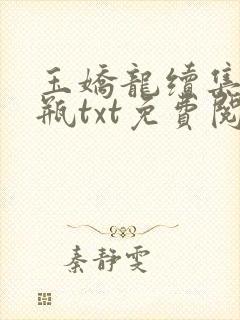 玉嬌龍續集
瓶txt免費閱
秦靜雯